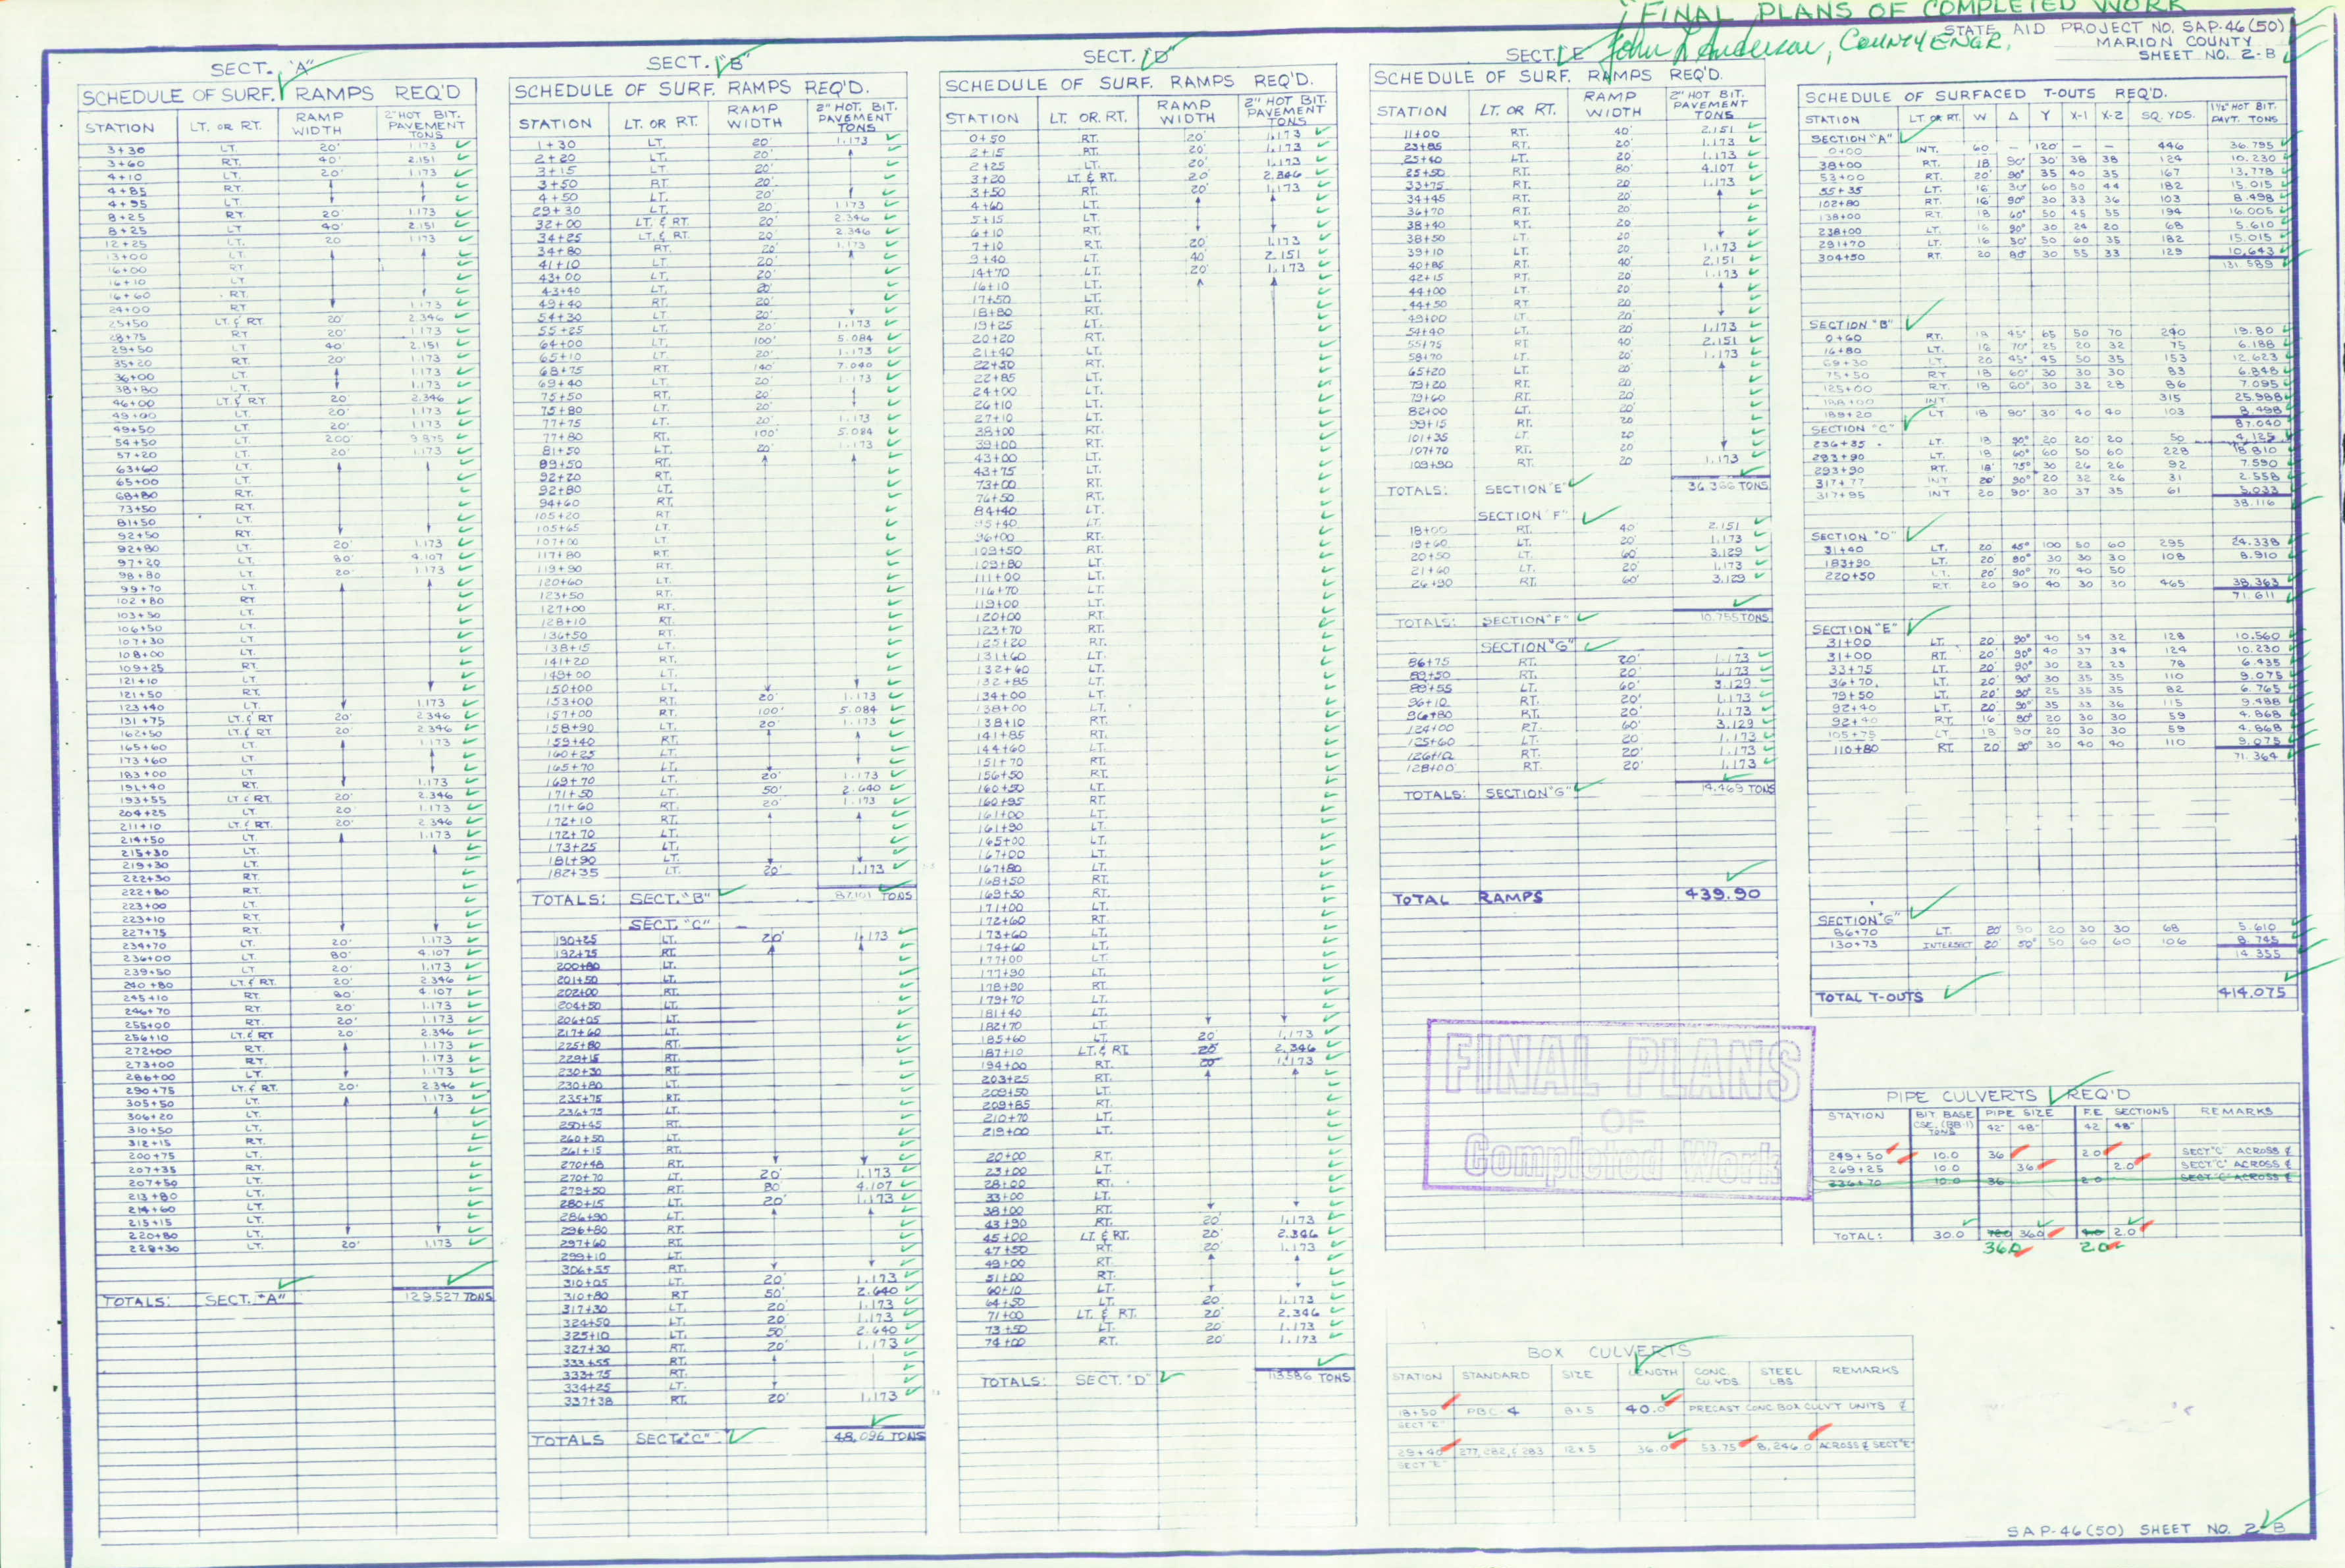 "FINAL PLANS OF COMPLETED WORK
John L Anderson, COUNTY ENGR.
STATE AID PROJECT NO. SAP-46(50)
MARION COUNTY
SHEET NO. 2-B
SECT. "A"
SCHEDULE OF SURF. RAMPS REQ'D
STATION LT. OR RT. RAMP WIDTH 2" HOT. BIT. PAVEMENT TONS
3+30 LT. 20' 1.173
3+60 RT. 40' 2.151
4+10 LT. 20' 1.173
4+85 RT.
4+95 LT.
8+25 RT. 20' 1.173
8+25 LT 40' 2.151
12+25 LT. 20 1.173
13+00 LT.
16+00 RT
16+10 LT
16+60 RT.
24+00 RT 1.173
25+50 LT. & RT 20' 2.346
28+75 RT 20' 1.173
29+50 LT 40' 2.151
35+20 RT. 20' 1.173
36+00 LT. 1.173
38+80 LT. 1.173
46+00 LT. & RT 20 2.346
49+00 LT. 20' 1.173
49+50 LT. 20' 1.173
54+50 LT. 200' 9.875
57+20 LT. 20' 1.173
63+60 LT.
65+00 LT.
68+80 RT.
73+50 RT.
81+50 LT.
92+50 RT.
92+80 LT. 20' 1.173
97+20 LT. 80' 4.107
98+80 LT. 20' 1.173
99+70 LT.
102+80 RT.
103+50 LT.
106+50 LT.
107+30 LT.
108+00 LT.
109+25 RT.
121+10 LT.
121+50 RT.
123+40 LT. 1.173
131+75 LT. & RT 20' 2.346
162+50 LT. & RT 20' 2.346
165+60 LT. 1.173
173+60 LT.
183+00 LT.
191+40 RT. 1.173
193+55 LT & RT. 20' 2.346
204+25 LT 20' 1.173
211+10 LT. & RT. 20' 2.346
214+50 LT. 1.173
215+30 LT.
219+30 LT.
222+30 RT.
222+80 RT.
223+00 LT.
223+10 RT.
227+75 RT.
234+70 LT. 20' 1.173
236+00 LT. 80' 4.107
239+50 LT 20' 1.173
240+80 LT. & RT. 20' 2.346
245+10 RT. 80' 4.107
246+70 RT 20' 1.173
255+00 RT. 20' 1.173
256+10 LT. & RT 20' 2.346
272+00 RT. 1.173
273+00 RT. 1.173
286+00 LT. 1.173
290+75 LT. & RT. 20' 2.346
305+50 LT. 1.173
306+20 LT.
310+50 LT.
312+15 RT.
200+75 LT.
207+35 RT.
207+50 LT.
213+80 LT.
214+60 LT.
215+15 LT.
220+80 LT.
229+30 LT. 20' 1.173
TOTALS: SECT. "A" 129.527 TONS
SECT. "B"
SCHEDULE OF SURF. RAMPS REQ'D.
STATION LT. OR RT. RAMP WIDTH 2" HOT. BIT. PAVEMENT TONS
1+30 LT 20' 1.173
2+20 LT. 20'
3+15 LT. 20'
3+50 RT 20'
4+50 LT. 20'
29+30 LT. 20' 1.173
32+00 LT. & RT. 20' 2.346
34+25 LT. & RT. 20' 2.346
34+80 RT. 20' 1.173
41+10 LT. 20'
43+00 LT. 20'
43+40 LT. 20'
49+40 RT. 20'
54+30 LT. 20'
55+25 LT. 20' 1.173
64+00 LT. 100' 5.084
65+10 LT. 20' 1.173
68+75 RT. 140' 7.040
69+40 LT. 20' 1.173
75+50 RT. 20
75+80 LT. 20'
77+75 LT. 20' 1.173
77+80 RT. 100' 5.084
81+50 LT. 20' 1.173
89+50 RT.
92+20 RT.
92+80 LT.
94+60 RT.
105+20 RT
105+65 LT.
107+00 LT.
117+80 RT.
119+90 RT.
120+60 LT.
123+50 RT.
127+00 RT.
128+10 RT.
136+50 RT.
138+15 LT.
141+20 RT.
149+00 LT.
150+00 LT.
153+00 RT. 20' 1.173
157+00 RT. 100' 5.084
158+90 LT. 20' 1.173
159+40 RT.
160+25 LT.
165+70 LT.
169+70 LT. 20' 1.173
171+50 LT. 50' 2.640
171+60 RT. 20' 1.173
172+10 RT.
172+70 LT.
173+25 LT.
181+90 LT.
182+35 LT. 20' 1.173
TOTALS: SECT. "B" 87.101 TONS
SECT. "C"
190+25 LT. 20' 1.173
192+75 RT.
200+80 LT.
201+50 LT.
202+00 RT.
204+50 LT.
206+05 LT.
217+60 LT.
225+80 RT.
229+15 RT.
230+30 RT.
230+80 LT.
235+75 RT.
236+75 LT.
250+45 RT.
260+50 LT.
261+15 RT.
270+48 RT.
270+70 LT. 20' 1.173
279+50 RT. 80' 4.107
280+15 LT. 20' 1.173
286+90 LT.
296+80 RT.
297+60 RT.
299+10 LT.
306+55 RT.
310+05 LT. 20' 1.173
310+80 RT 50' 2.640
317+30 LT. 20' 1.173
324+50 LT. 20' 1.173
325+10 LT. 50' 2.640
327+30 RT. 20' 1.173
333+55 RT.
333+75 RT.
334+25 LT.
337+38 RT. 20' 1.173
TOTALS SECT. "C" 48.096 TONS
SECT. "D"
SCHEDULE OF SURF. RAMPS REQ'D.
STATION LT. OR. RT. RAMP WIDTH 2" HOT BIT. PAVEMENT TONS
0+50 RT. 20' 1.173
2+15 RT. 20' 1.173
2+25 LT. 20' 1.173
3+20 LT. & RT. 20' 2.346
3+50 RT. 20' 1.173
4+60 LT.
5+15 LT.
6+10 RT.
7+10 RT. 20' 1.173
9+40 LT. 40' 2.151
14+70 LT. 20' 1.173
16+10 LT.
17+50 LT.
18+80 RT.
19+25 LT.
20+20 RT.
21+40 LT.
22+50 RT.
22+85 LT.
24+00 LT.
26+10 LT.
27+10 LT.
38+00 RT.
39+00 RT.
43+00 LT.
43+75 LT.
73+00 RT.
76+50 RT.
84+40 LT.
LT.
96+00 RT.
109+50 RT.
109+80 LT.
111+00 LT.
116+70 LT.
119+00 LT.
120+00 RT.
123+70 RT.
125+20 RT.
131+60 LT.
132+40 LT.
132+85 LT.
134+00 LT.
138+00 LT.
138+10 RT.
141+85 RT.
144+60 LT.
151+70 RT.
156+50 RT.
160+50 LT.
160+95 RT.
161+00 LT.
161+90 LT.
165+00 LT.
167+00 LT.
167+80 LT.
168+50 RT.
169+50 RT.
171+00 LT.
172+60 RT.
173+60 LT.
174+60 LT.
177+00 LT.
177+90 LT.
178+90 RT
179+70 LT.
181+40 LT.
182+70 LT.
185+60 LT. 20' 1.173
187+10 LT. & RT. 20' 2.346
194+00 RT. 20' 1.173
203+25 RT.
209+50 LT.
209+85 RT.
210+70 LT.
219+00 LT.
20+00 RT.
23+00 LT.
28+00 RT.
33+00 LT.
38+00 RT.
43+90 RT. 20' 1.173
45+00 LT. & RT. 20' 2.346
47+50 RT. 20' 1.173
49+00 RT.
51+00 RT.
60+10 LT.
64+50 LT. 20' 1.173
71+00 LT. & RT. 20' 2.346
73+50 LT. 20' 1.173
74+00 RT. 20' 1.173
TOTALS: SECT. "D" 113.586 TONS
SECT. E
SCHEDULE OF SURF. RAMPS REQ'D.
STATION LT. OR RT. RAMP WIDTH 2" HOT BIT. PAVEMENT TONS
11+00 RT. 40' 2.151
23+85 RT. 20' 1.173
25+40 LT. 20' 1.173
25+50 RT. 80' 4.107
33+75 RT. 20 1.173
34+45 RT. 20'
36+70 RT. 20
38+40 RT. 20
38+50 LT. 20'
39+10 LT. 20' 1.173
40+85 RT. 40' 2.151
42+15 RT. 20' 1.173
44+00 LT. 20'
44+50 RT 20
49+00 LT. 20'
54+40 LT. 20' 1.173
55+75 RT 40' 2.151
58+70 LT. 20' 1.173
65+20 LT. 20'
79+20 RT. 20
79+60 RT. 20
82+00 LT. 20'
99+15 RT. 20
101+35 LT 20
107+70 RT. 20
109+90 RT. 20 1.173
TOTALS: SECTION "E" 36.366 TONS
SECTION "F"
18+00 RT. 40 2.151
19+60 LT. 20' 1.173
20+50 LT. 60' 3.129
21+60 LT. 20' 1.173
26+90 RT. 60' 3.129
TOTALS: SECTION "F" 10.755 TONS
SECTION "G"
86+75 RT. 20' 1.173
89+50 RT. 20' 1.173
89+55 LT. 60' 3.129
96+10 RT. 20' 1.173
96+80 RT. 20' 1.173
124+00 RT. 60' 3.129
125+60 LT. 20' 1.173
126+10 RT. 20' 1.173
128+00 RT. 20' 1.173
TOTALS: SECTION "G" 14.469 TONS
TOTAL RAMPS 439.90
SCHEDULE OF SURFACED T-OUTS REQ'D.
STATION LT OR RT. W Δ Y X-1 X-2 SQ. YDS. 1½" HOT BIT. PAVT. TONS
SECTION "A"
0+00 INT. 60 — 120' — — 446 36.795
38+00 RT. 18 90° 30' 38 38 124 10.230
53+00 RT. 20' 90° 35 40 35 167 13.778
55+35 LT. 16 30° 60 50 44 182 15.015
102+80 RT. 16 90° 30 33 36 103 8.498
138+00 RT. 18 60° 50 45 55 194 16.005
238+00 LT. 16 90° 30 24 20 68 5.610
291+70 LT. 16 30° 50 60 35 182 15.015
304+50 RT. 20 80° 30 55 33 129 10.643
131.589
SECTION "B"
0+60 RT. 18 45° 65 50 70 240 19.80
16+80 LT. 16 70° 25 20 32 75 6.188
69+30 LT. 20 45° 45 50 35 153 12.623
75+50 RT 18 60° 30 30 30 83 6.848
125+00 RT. 18 60° 30 32 28 86 7.095
188+00 INT. 315 25.988
189+20 LT 18 90° 30' 40 40 103 8.498
87.040
SECTION "C"
236+35 LT. 18 90° 20 20' 20 50 4.125
283+90 LT. 18 60° 60 50 60 228 18.810
293+90 RT. 18' 75° 30 26 26 92 7.590
317+77 INT 20' 90° 20 32 26 31 2.558
317+95 INT 20 90° 30 37 35 61 5.033
38.116
SECTION "D"
31+40 LT. 20 45° 100 50 60 295 24.338
183+90 LT. 20' 90° 30 30 30 108 8.910
220+50 LT. 20' 90° 70 40 50
RT. 20 90 40 30 30 465 38.363
71.611
SECTION "E"
31+00 LT. 20 90° 40 54 32 128 10.560
31+00 RT. 20' 90° 40 37 34 124 10.230
33+75 LT. 20' 90° 30 23 23 78 6.435
36+70 LT. 20' 90° 30 35 35 110 9.075
79+50 LT. 20' 90° 25 35 35 82 6.765
92+40 LT. 20' 90° 35 33 36 115 9.488
92+40 RT. 16 80° 20 30 30 59 4.868
105+75 LT 18 90 20 30 30 59 4.868
110+80 RT. 20 90° 30 40 40 110 9.075
71.364
SECTION "G"
86+70 LT. 20' 90 20 30 30 68 5.610
130+73 INTERSECT 20' 50° 50 60 60 106 8.745
14.355
TOTAL T-OUTS 414.075
FINAL PLANS
OF
Completed Work
PIPE CULVERTS REQ'D
STATION BIT. BASE CSE. (BB-1) TONS PIPE SIZE 42" 48" F.E. SECTIONS 42 48" REMARKS
249+50 10.0 36 2.0 SECT "C" ACROSS ℄
269+25 10.0 36 2.0 SECT "C" ACROSS ℄
336+70 10.0 36 2.0 SECT "C" ACROSS ℄
TOTAL: 30.0 72.0 36.0 4.0 2.0
36.0 2.0
BOX CULVERTS
STATION STANDARD SIZE LENGTH CONC. CU. YDS. STEEL LBS. REMARKS
18+50 PBC-4 8x5 40.0 PRECAST CONC BOX CULVT UNITS ℄
SECT "E"
29+40 277, 282, & 283 12x5 36.0 53.75 8,246.0 ACROSS ℄ SECT "E"
SECT "E"
SAP-46(50) SHEET NO. 2-B